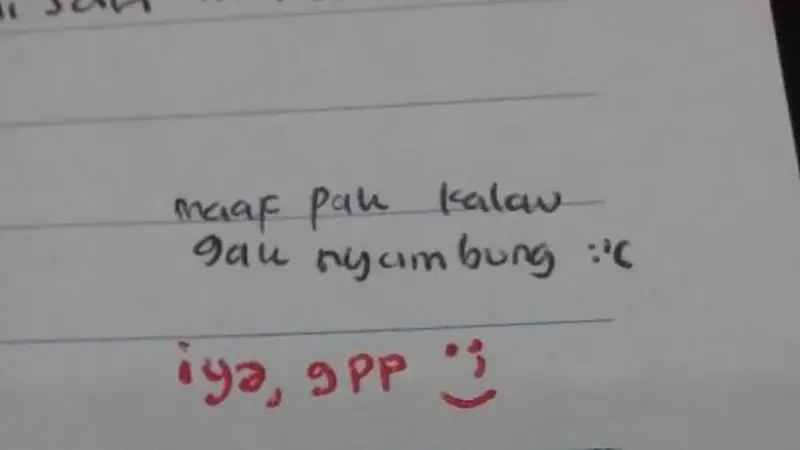 maaf pak kalau
gak nyambung :'(
iya, gpp :)